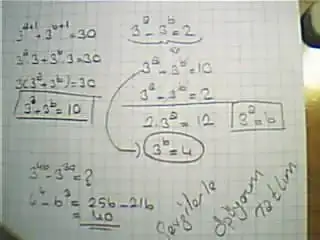 3^(a+1) + 3^(b+1) = 30
3^a · 3 + 3^b · 3 = 30
3(3^a + 3^b) = 30
3^a + 3^b = 10
3^a - 3^b = 2
3^a - 3^b = 10
3^a - 3^b = 2
2 · 3^a = 12
3^a = 6
3^b = 4
3^(4a) - 3^(3a) = ?
6^4 - 6^3 = 256 - 216
= 40
Sevgilerle
Öpüyorum
Tatlım